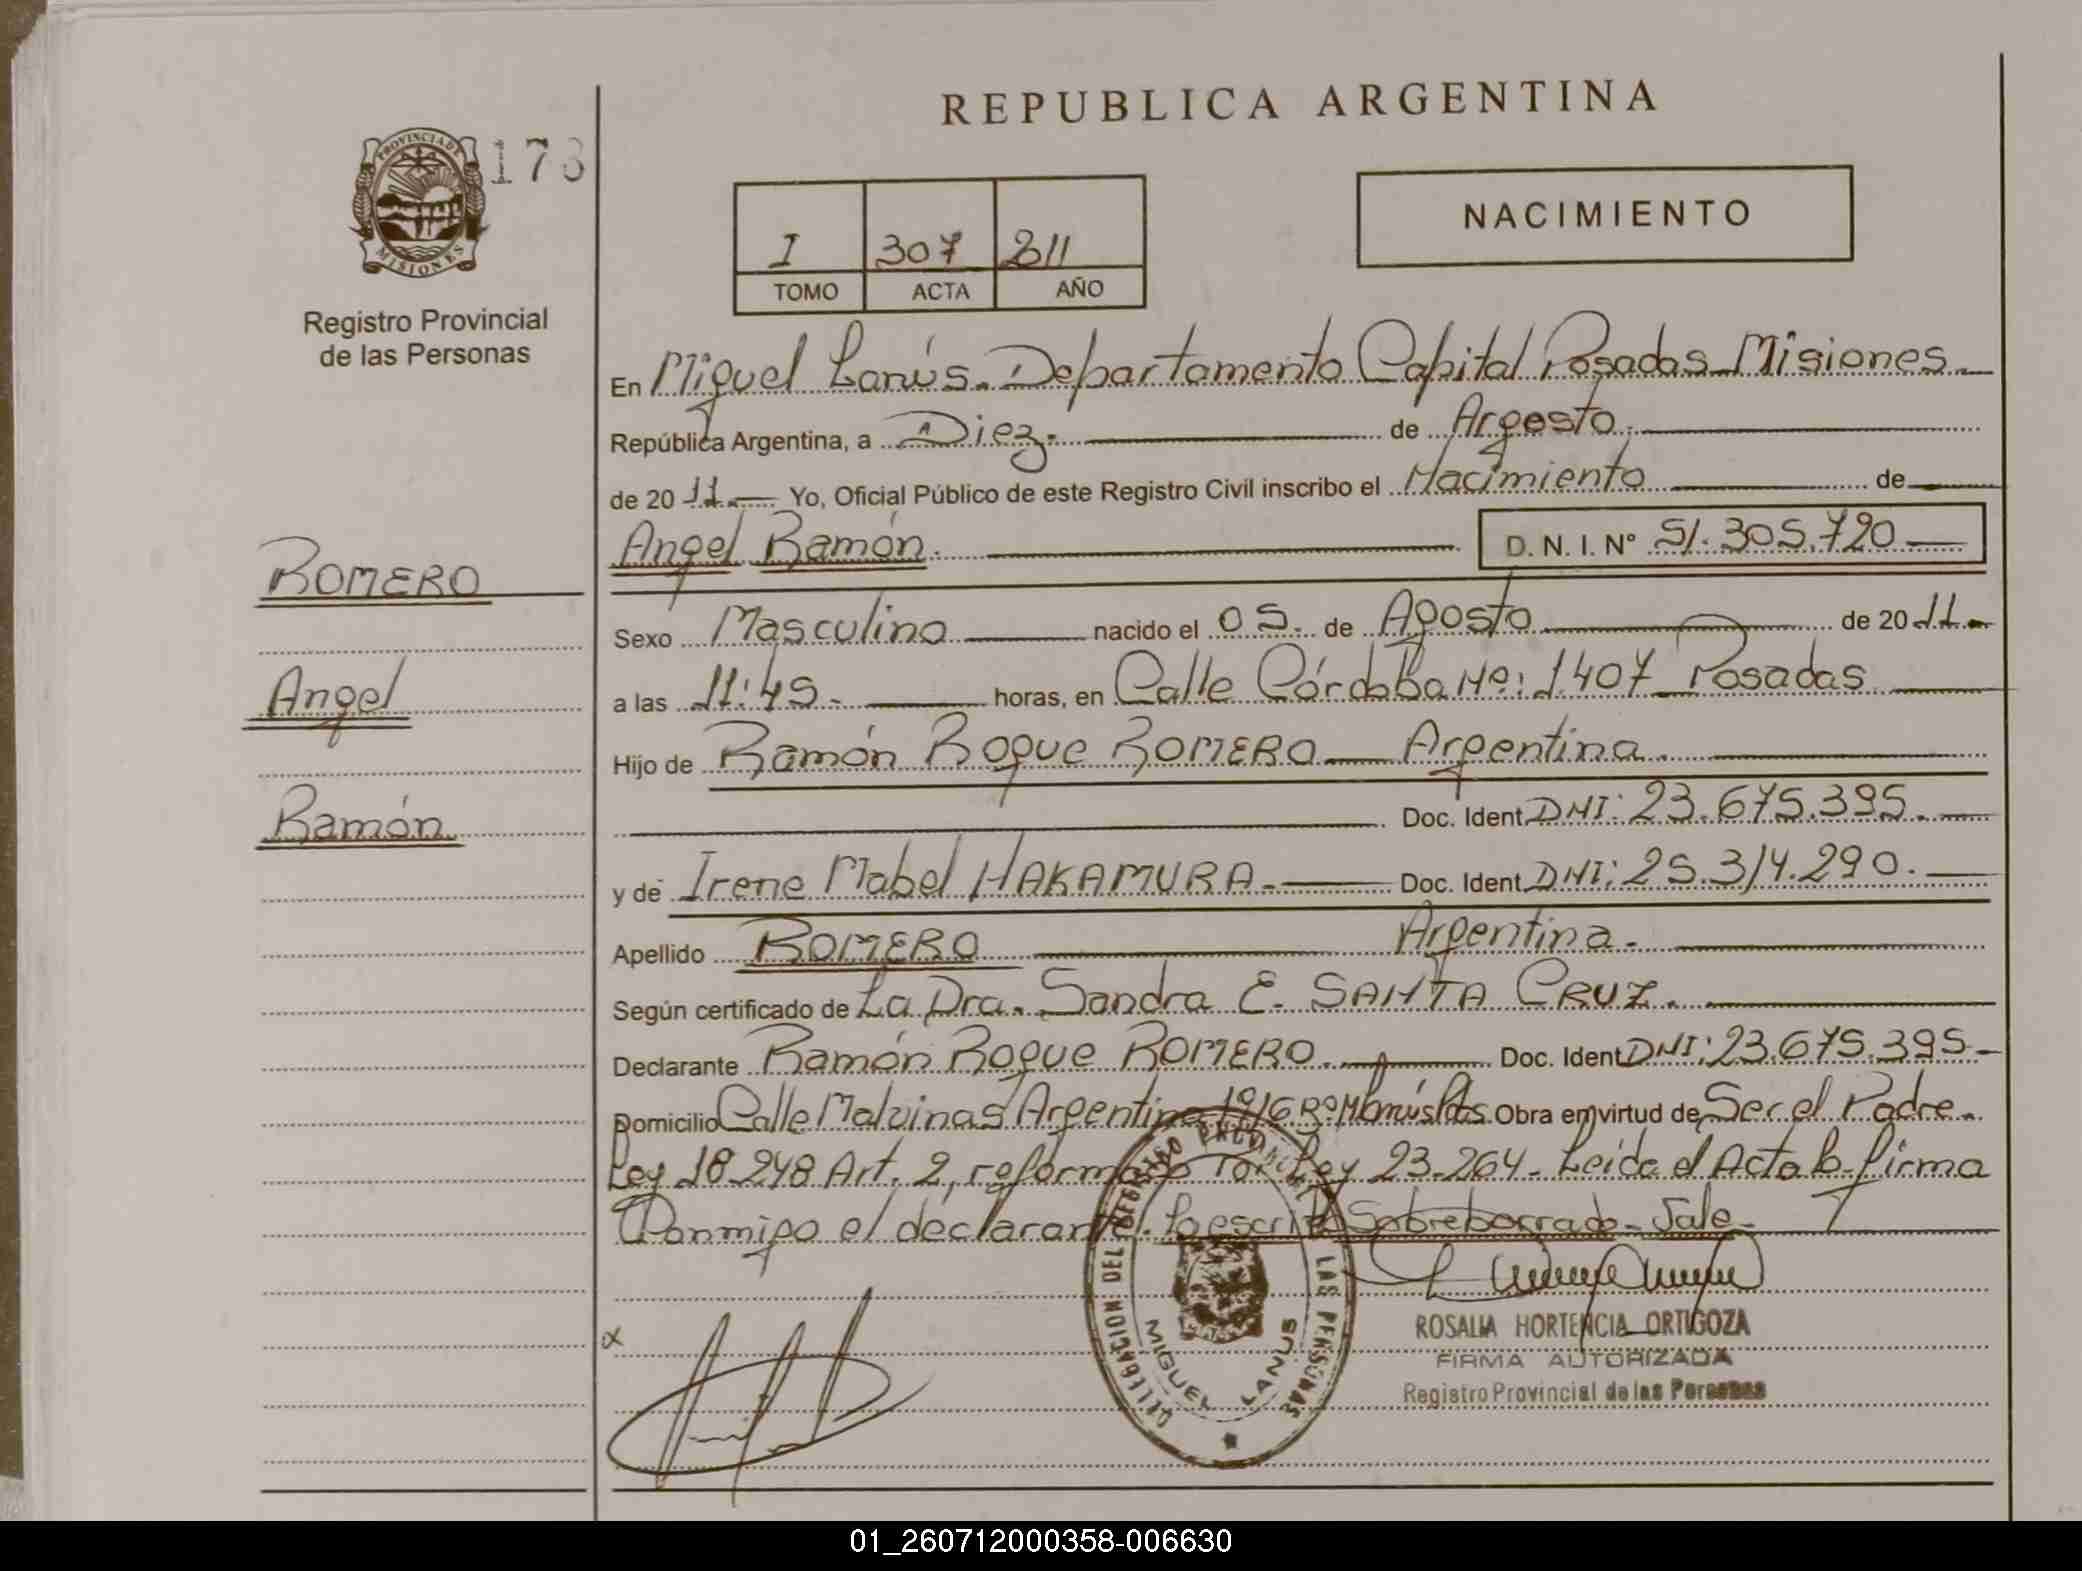 REPUBLICA ARGENTINA
PROVINCIA DE
MISIONES
173
Registro Provincial
de las Personas
I 307 2011
TOMO ACTA AÑO
NACIMIENTO
En Miguel Lanús. Departamento Capital Posadas Misiones
República Argentina, a Diez. de Argosto.
de 20 11. Yo, Oficial Público de este Registro Civil inscribo el Nacimiento de
Angel Ramón. D. N. I. N° 51.305.720
ROMERO
Angel
Ramón
Sexo Masculino nacido el 05. de Agosto de 20 11.
a las 11:45. horas, en Calle Córdoba Nº: 1407 Posadas
Hijo de Ramón Roque ROMERO Argentina.
Doc. Ident. DNI: 23.675.395.
y de Irene Mabel NAKAMURA. Doc. Ident. DNI: 25.314.290.
Apellido ROMERO Argentina.
Según certificado de La Dra. Sandra E. SANTA CRUZ.
Declarante Ramón Roque ROMERO. Doc. Ident. DNI: 23.675.395
Domicilio Calle Malvinas Argentina 1916 Obra en virtud de Ser el Padre.
Ley 18.248 Art. 2, reformado Por Ley 23.264. Leida el Acta la firma
Conmigo el declarante. Lo escrito Sobreborrado. Vale.
DELEGACION DEL REGISTRO PROVINCIAL LAS PERSONAS
MIGUEL LANUS
ROSALIA HORTENCIA ORTIGOZA
FIRMA AUTORIZADA
Registro Provincial de las Personas
01_260712000358-006630